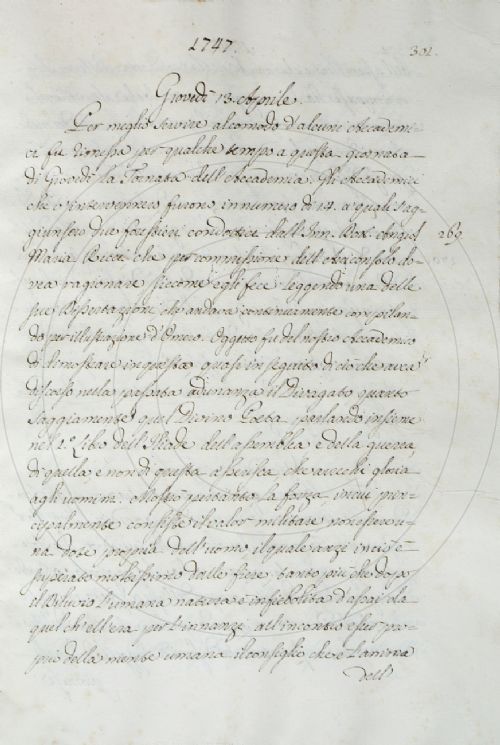 1747.
301.
Giovedì 13. Aprile.
Per meglio servire al comodo d'alcuni Accademi-
ci fu rimessa per qualche tempo a questa giornata
di Giovedì la Tornata dell'Accademia. Gli Accademici
che v'intervennero furono in numero di 14. a' quali s'ag-
giunsero due forestieri condottici dall' Angiol
269
Maria Ricci che per commissione dell'Arciconsolo do-
vea ragionare siccome egli fece leggendo una delle
sue Dissertazioni che andava continuamente compilan-
do per illustrazione d'Omero. Oggetto fu del nostro Accademico
di dimostrare in questa quasi in seguito di ciò che avea
discorso nella passata adunanza il Divagato quanto
saggiamente quel Divino Poeta parlando insieme
nel 1.º Libro dell'Iliade dell'assemblea e della guerra,
di quella, e non di questa asserisca che arrechi gloria
agli uomini. Mostrò pertanto la forza in cui prin-
cipalmente consiste il valor militare non essere u-
na dote propria dell'uomo il quale anzi in ciò è
superato moltissimo dalle fiere tanto più che dopo
il Diluvio l'umana natura è infiebolita d'assai da
quel ch'ell'era per l'innanzi all'incontro esser pro-
prio della mente umana il consiglio che è l'ancora
dell'